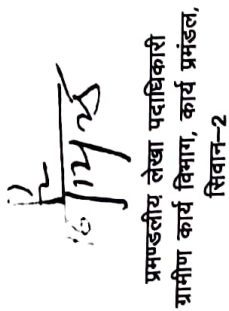 प्रमण्डलीय लेखा पदाधिकारी
ग्रामीण कार्य विभाग, कार्य प्रमंडल,
सिवान–2